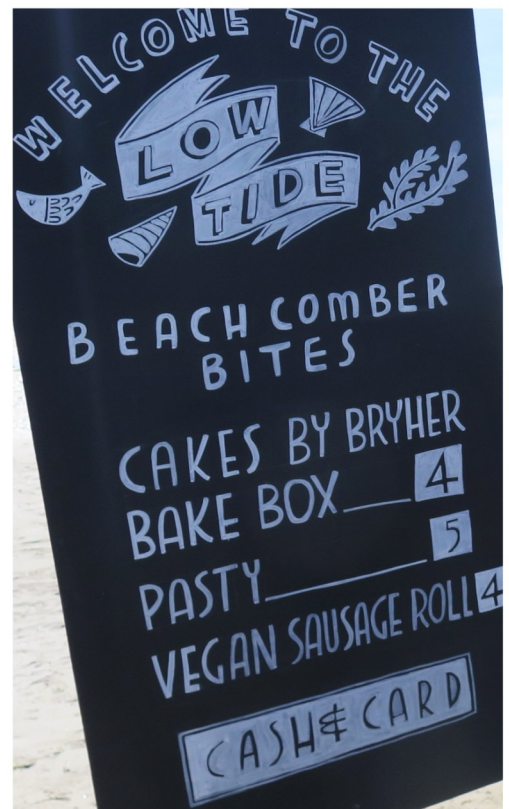 WELCOME TO THE
LOW
TIDE
BEACHCOMBER
BITES
CAKES BY BRYHER
BAKE BOX 4
PASTY 5
VEGAN SAUSAGE ROLL 4
CASH & CARD